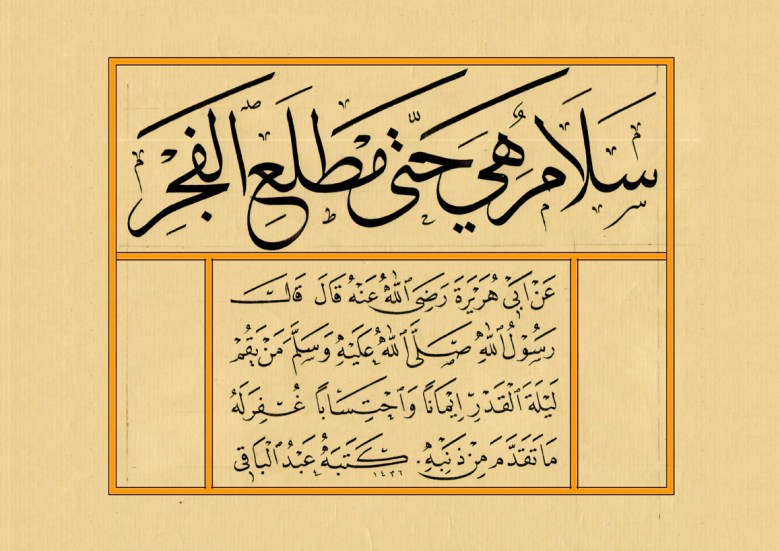 سَلَامٌ هِيَ حَتَّى مَطْلَعِ الْفَجْرِ
عَنْ اَبِي هُرَيْرَةَ رَضِيَ اللهُ عَنْهُ قَالَ قَالَ
رَسُوْلُ اللهِ صَلَّى اللهُ عَلَيْهِ وَسَلَّمَ مَنْ يَقُمْ
لَيْلَةَ الْقَدْرِ اِيْمَانًا وَاحْتِسَابًا غُفِرَ لَهُ
مَا تَقَدَّمَ مِنْ ذَنْبِهِ. كَتَبَهُ عَبْدُ الْبَاقِي ١٤٣٦